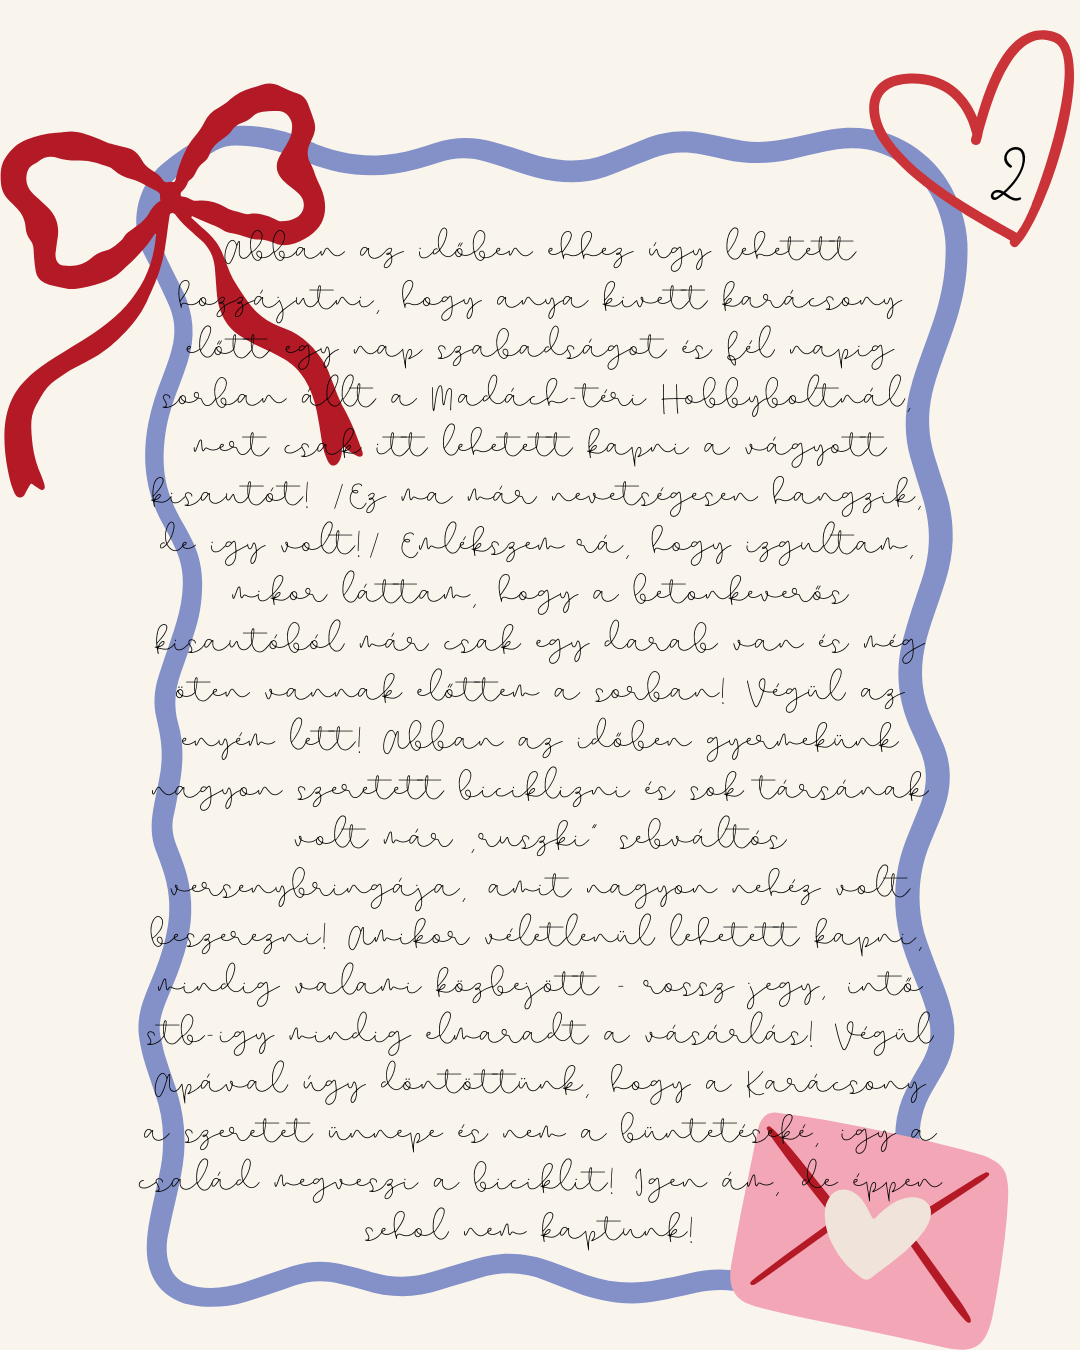 2
Abban az időben ehhez úgy lehetett
hozzájutni, hogy anya kivett karácsony
előtt egy nap szabadságot és fél napig
sorban állt a Madách-téri Hobbyboltnál,
mert csak itt lehetett kapni a vágyott
kisautót! /Ez ma már nevetségesen hangzik,
de igy volt!/ Emlékszem rá, hogy izgultam,
mikor láttam, hogy a betonkeverős
kisautóból már csak egy darab van és még
öten vannak előttem a sorban! Végül az
enyém lett! Abban az időben gyermekünk
nagyon szeretett biciklizni és sok társának
volt már ,ruszki" sebváltós
versenybringája, amit nagyon nehéz volt
beszerezni! Amikor véletlenül lehetett kapni,
mindig valami közbejött - rossz jegy, intő
stb-igy mindig elmaradt a vásárlás! Végül
Apával úgy döntöttünk, hogy a Karácsony
a szeretet ünnepe és nem a büntetéseké, igy a
család megveszi a biciklit! Igen ám, de éppen
sehol nem kaptunk!